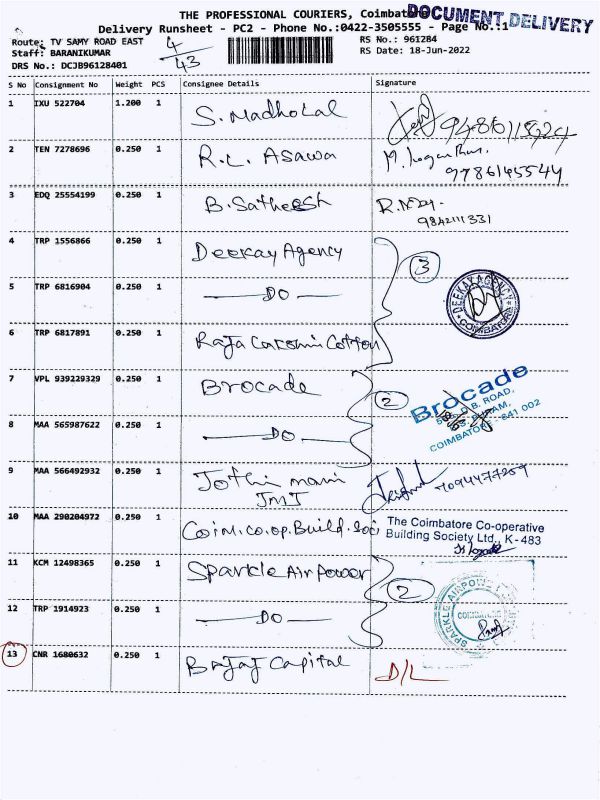 THE PROFESSIONAL COURIERS, Coimbatore
DOCUMENT DELIVERY
Delivery Runsheet - PC2 - Phone No.:0422-3505555 - Page No.:1
Route: TV SAMY ROAD EAST
Staff: BARANIKUMAR
DRS No.: DCJB96128401
4/43
RS No.: 961284
RS Date: 18-Jun-2022
S No Consignment No Weight PCS Consignee Details Signature
1 IXU 522704 1.200 1 S. Madholal 9486118624
2 TEN 7278696 0.250 1 R.L. Asawa M. 9786145544
3 EDQ 25554199 0.250 1 B. Satheesh 9842111331
4 TRP 1556866 0.250 1 Deekay Agency
3
5 TRP 6816904 0.250 1 — DO — DEEKAY AGENCY COIMBATORE
6 TRP 6817891 0.250 1 Raja Laxmi Cotton
7 VPL 939229329 0.250 1 Brocade
2
Brocade
B. ROAD,
COIMBATORE - 641 002
8 MAA 565987622 0.250 1 — DO —
9 MAA 566492932 0.250 1 Jothi mani
JMJ
9094477259
10 MAA 290204972 0.250 1 Coim.co.op.Build.Soci The Coimbatore Co-operative
Building Society Ltd., K - 483
11 KCM 12498365 0.250 1 Sparkle Air Power
2
12 TRP 1914923 0.250 1 — DO — SPARKLE AIRPOWER
13 CNR 1680632 0.250 1 Bajaj Capital D/L